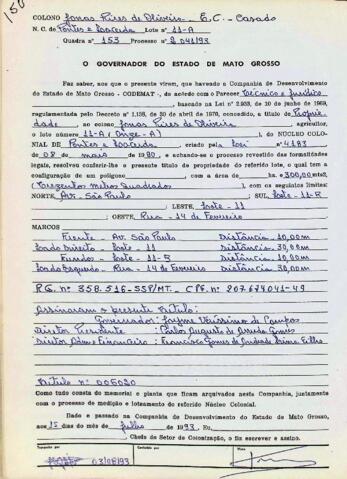 150
COLONO Jonas Pires de Oliveira - E.C. - Casado
N. C. de Pontes e Lacerda - Lote 11-A
Quadra nº 153 Processo nº 2.041/93
O GOVERNADOR DO ESTADO DE MATO GROSSO
Faz saber, aos que o presente virem, que havendo a Companhia de Desenvolvimento
do Estado de Mato Grosso - CODEMAT -, de acordo com o Parecer Técnico e Jurídico
, baseado na Lei nº 2.939, de 20 de junho de 1969,
regulamentada pelo Decreto nº 1.138, de 30 de abril de 1970, concedido, a título de Proprie
dade ao colono Jonas Pires de Oliveira agricultor,
o lote número 11-A (Onze-A), do NÚCLEO COLO-
NIAL DE Pontes e Lacerda criado pela Lei nº 4.183
de 08 de maio de 1980, e achando-se o processo revestido das formalidades
legais, resolveu conferir-lhe o presente título de propriedade do referido lote, o qual tem a
configuração de um polígono com a área de ha=300,00mts2
(Trezentos Metros Quadrados) com os seguintes limites:
NORTE, Av. São Paulo ; SUL, Lote-11-R
; LESTE, Lote-11
; OESTE, Rua - 14 de Fevereiro
MARCOS
Frente - Av. São Paulo Distância 10,00m
Lado Direito - Lote - 11 Distância 30,00m
Fundos - Lote - 11-R Distância 10,00m
Lado Esquerdo - Rua - 14 de Fevereiro Distância 30,00m
R.G. nº 358.516-SSP/MT. - CPF. nº 207.674.041-49
Assinaram o presente título:
Governador: Jayme Veríssimo de Campos
Diretor Presidente: Carlos Augusto de Arruda Gomes
Diretor Adm e Financeiro: Francisco Gomes de Andrade Lima Filho
Título nº 005020
Como tudo consta do memorial e planta que ficam arquivados nesta Companhia, juntamente
com o processo de medição e loteamento do referido Núcleo Colonial.
Dado e passado na Companhia de Desenvolvimento do Estado de Mato Grosso,
aos 15 dias do mês de julho de 1993. Eu,
, Chefe do Setor de Colonização, o fiz escrever e assino.
03/08/93
Visto